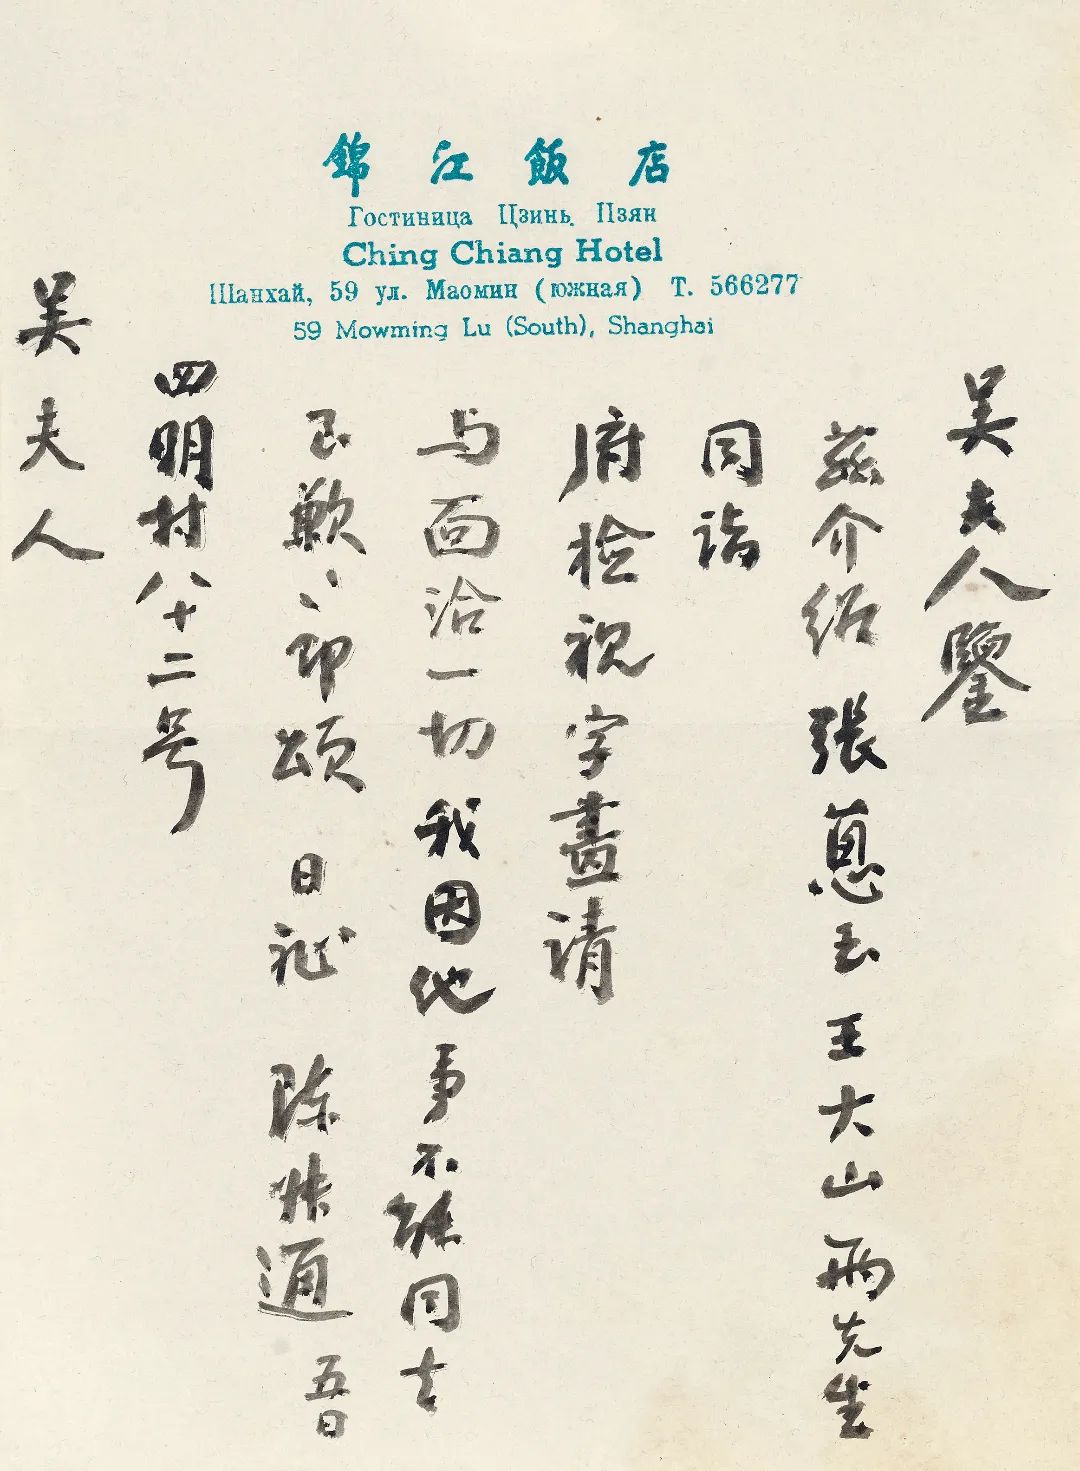 錦江飯店
Гостиница Цзинь Цзян
Ching Chiang Hotel
Шанхай, 59 ул. Маомин (южная) Т. 566277
59 Mowming Lu (South), Shanghai
吴夫人鑒
茲介绍張蔥玉王大山兩先生
同詣
府检视字畫请
与面洽一切我因他事不能同去
歉〻即颂 日祉 陈叔通 五日
四明村八十二号
吴夫人